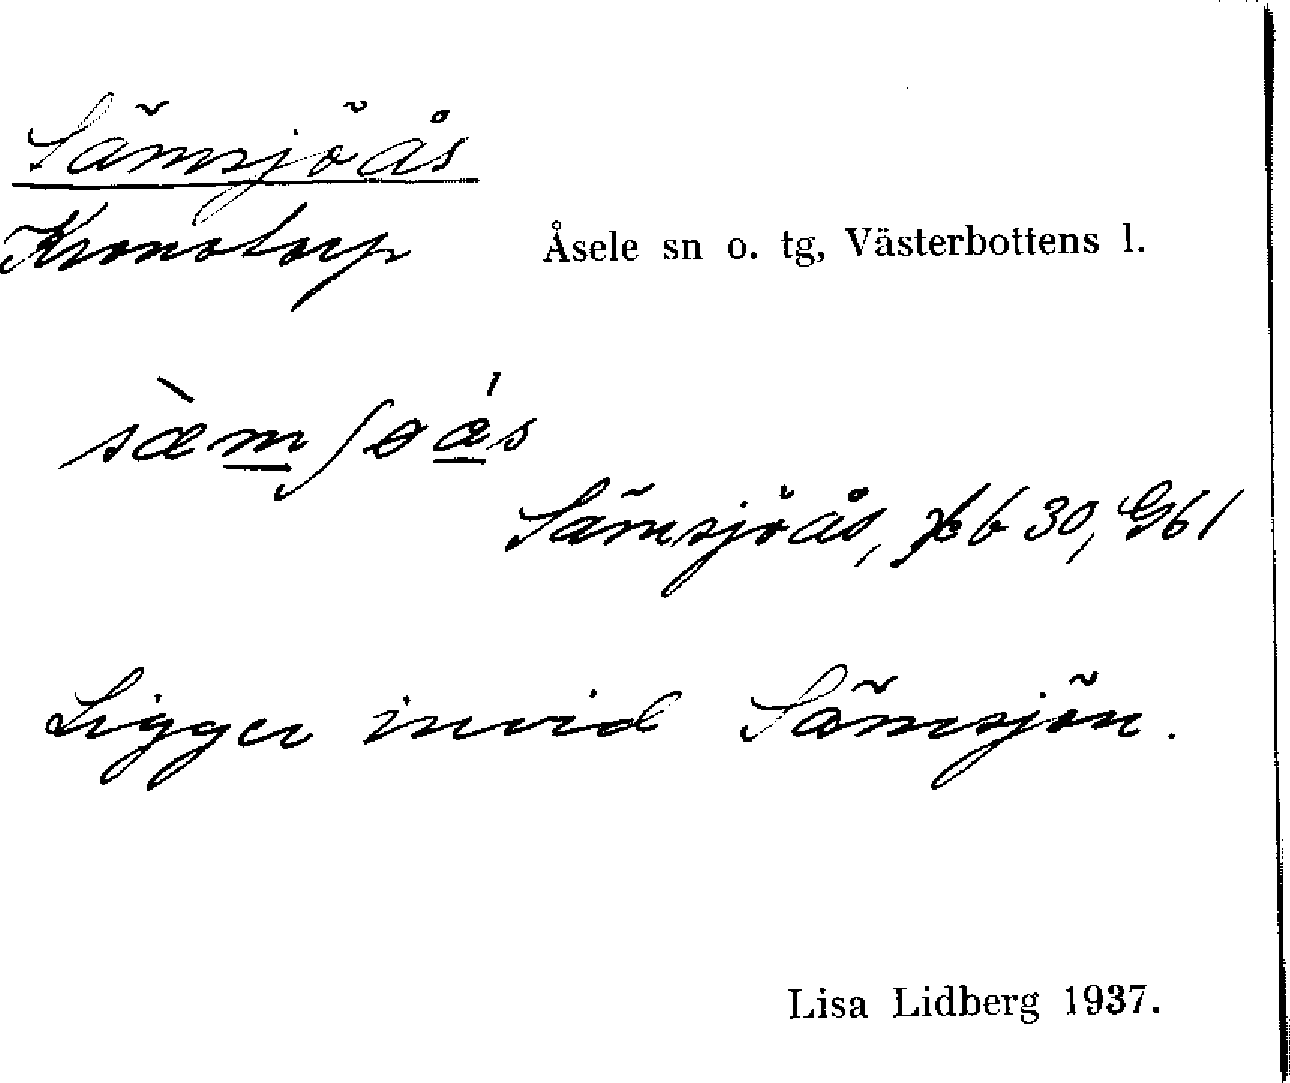 Sämsjöås
Kronotorp Åsele sn o. tg, Västerbottens l.
Sämsjöås, 30, G61
Ligger invid Sämsjön.
Lisa Lidberg 1937.